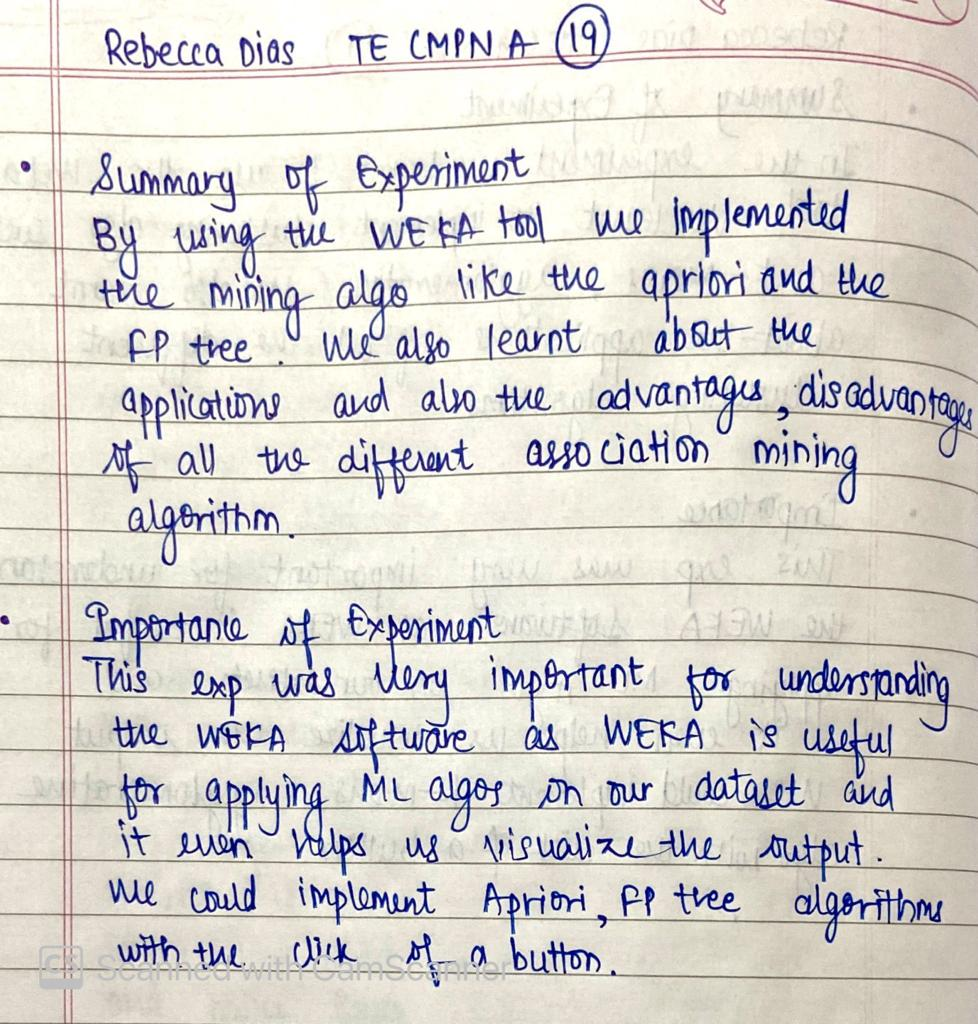 Rebecca Dias TE CMPN A 19
• Summary of Experiment
By using the WEKA tool we implemented
the mining algo like the apriori and the
FP tree. We also learnt about the
applications and also the advantages, disadvantages
of all the different association mining
algorithm.
• Importance of Experiment
This exp was very important for understanding
the WEKA software as WEKA is useful
for applying ML algos on our dataset and
it even helps us visualize the output.
We could implement Apriori, FP tree algorithms
with the click of a button.
CS Scanned with CamScanner